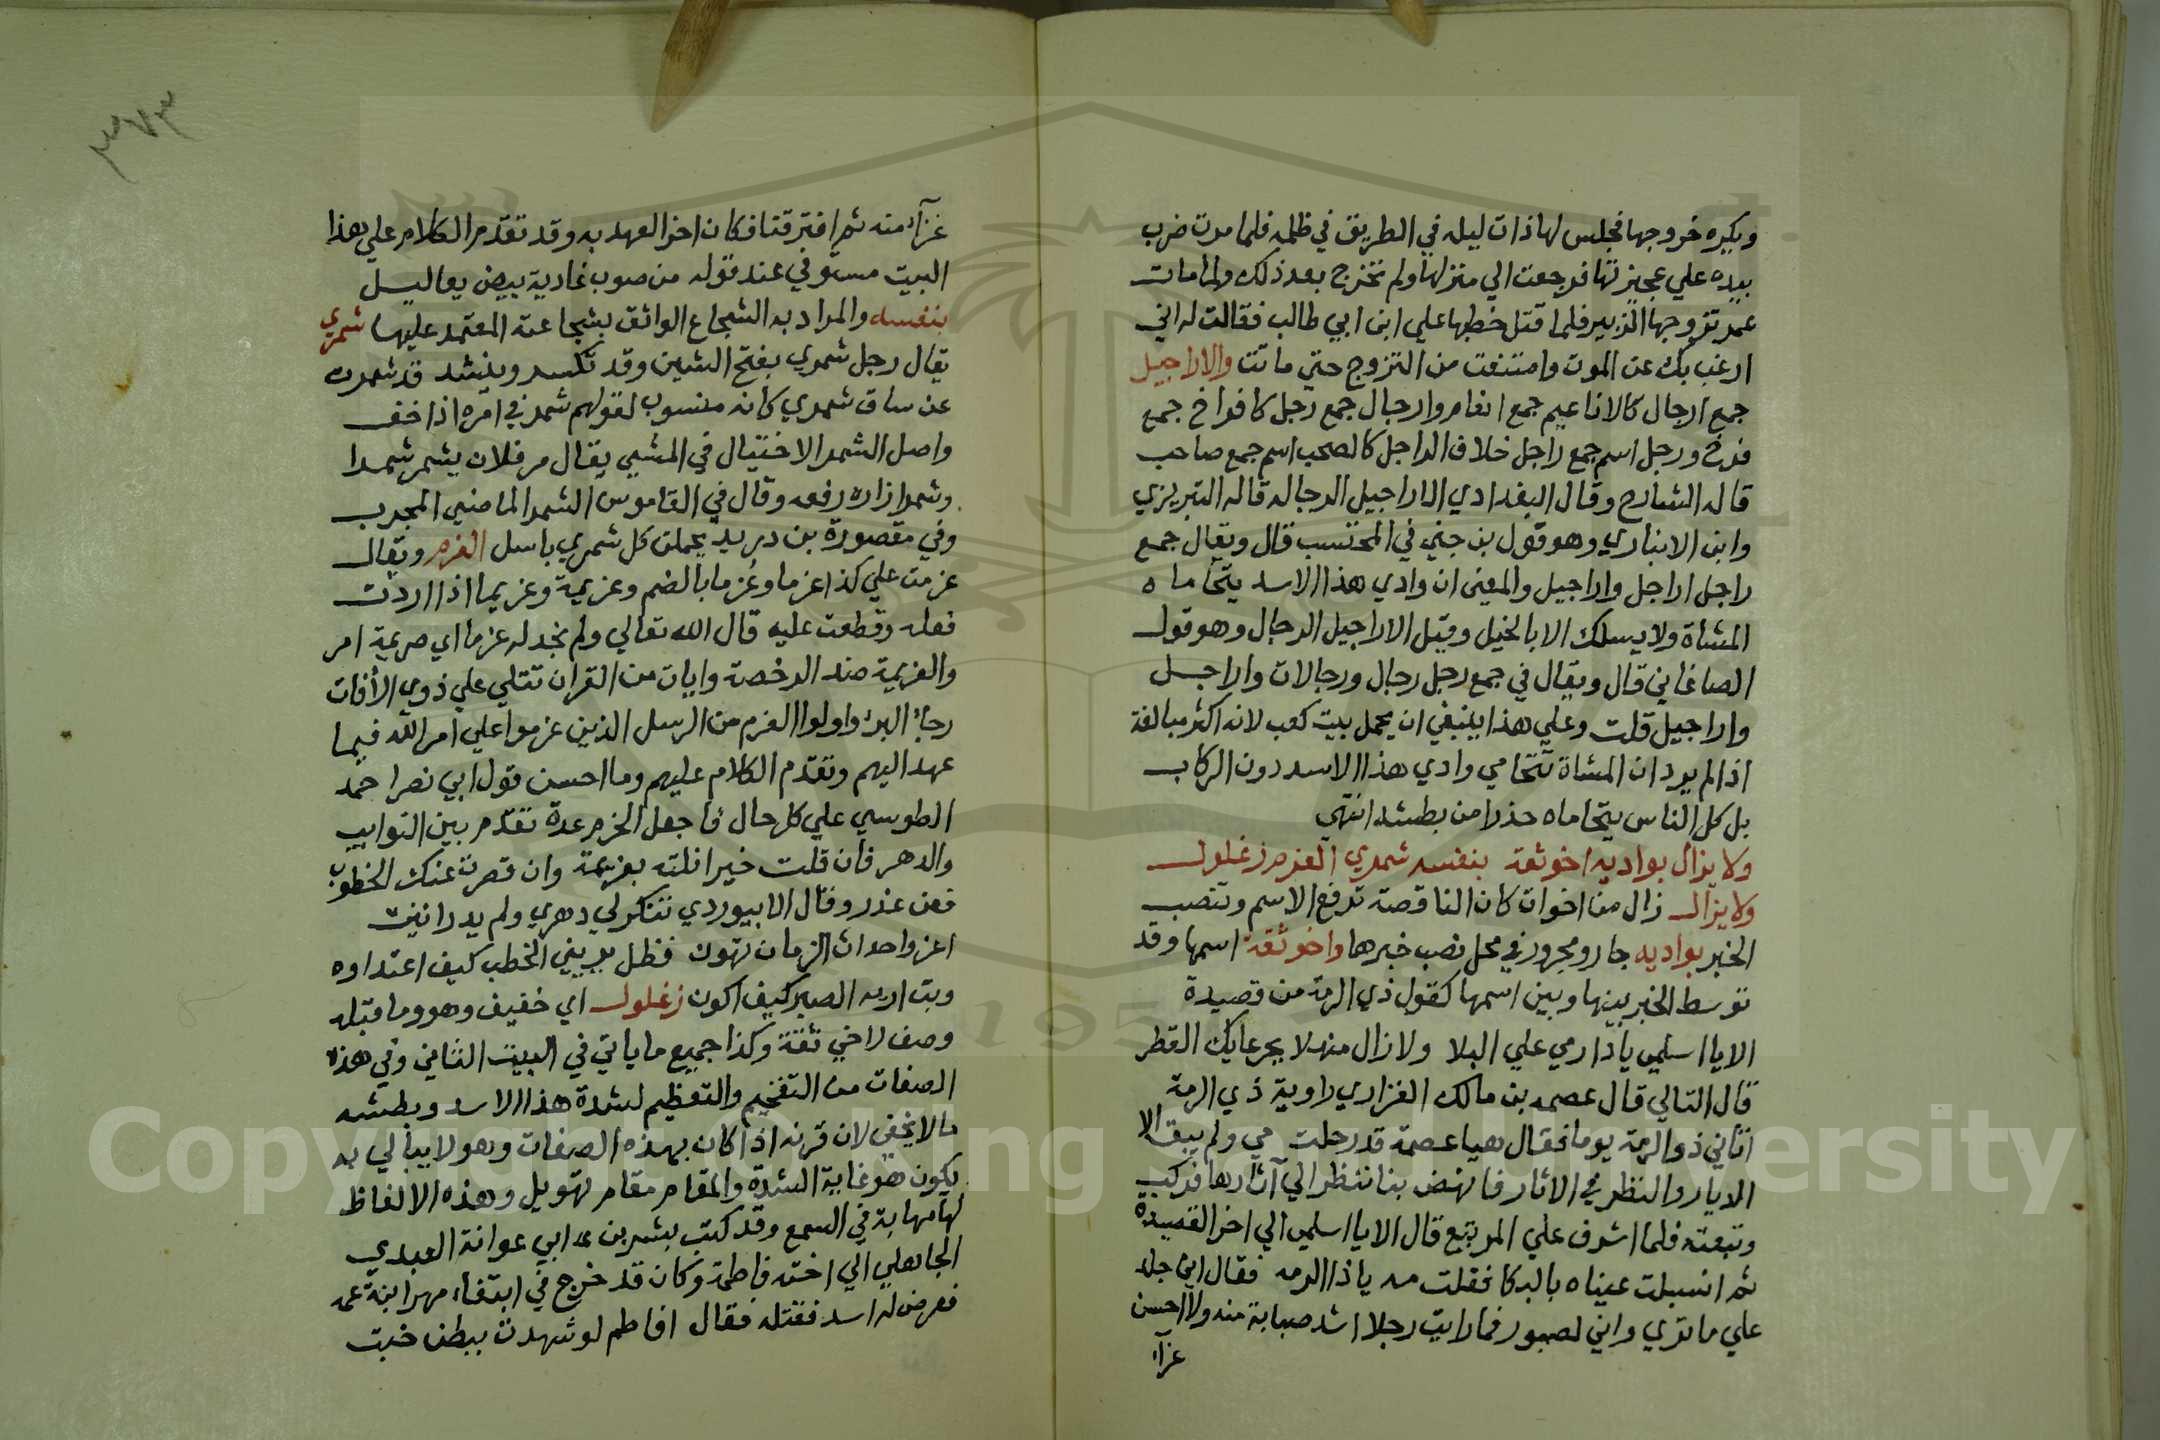 ويكره خروجها فجلس لها ذات ليله في الطريق في ظلمه فلما مرت ضرب
بيده علي عجيزتها فرجعت الي منزلها ولم تخرج بعد ذلك ولما مات
عمر تزوجها الزبير فلما قتل خطبها علي ابن ابي طالب فقالت له اني
ارغب بك عن الموت وامتنعت من التزوج حتي ماتت والاراجيل
جمع ارجال كالاناعيم جمع انعام وارجال جمع رجل كافراخ جمع
فرخ ورجل اسم جمع راجل خلاف الراجل كالصحب اسم جمع صاحب
قاله الشارح وقال البغدادي الاراجيل الرجاله قاله التبريزي
وابن الانباري وهو قول بن جني في المحتسب قال ويقال جمع
راجل اراجل واراجيل والمعني ان وادي هذا الاسد يتحاماه
المشاة ولا يسلك الا بالخيل وقيل الاراجيل الرجال وهو قول
الصاغاني قال ويقال في جمع رجل رجال ورجالات واراجل
واراجيل قلت وعلي هذا ينبغي ان يحمل بيت كعب لانه اكثر مبالغة
اذ لم يرد ان المشاة تتحامي وادي هذا الاسد دون الركاب
بل كل الناس يتحاماه حذرا من بطشه انتهي
ولا يزال بواديه اخوثقة بنفسه شمري العزم زغلول
ولا يزال زال من اخوات كان الناقصة ترفع الاسم وتنصب
الخبر بواديه جار ومجرور في محل نصب خبرها واخوثقة اسمها وقد
توسط الخبر بينها وبين اسمها كقول ذي الرمة من قصيدة
الا يا اسلمي يا دارمي علي البلا ولا زال منهلا بجرعايك القطر
قال التالي قال عصمه بن مالك الفزاري راوية ذي الرمة
اتاني ذو الرمة يوما فقال هيا عصمة قد رحلت مي ولم يبق الا
الديار والنظر في الاثار فانهض بنا ننظر الي آثارها فركب
وتبعته فلما اشرف علي المرتبع قال الا يا اسلمي الي اخر القصيدة
ثم انسبلت عيناه بالبكا فقلت مه يا ذا الرمه فقال اني جلد
علي ما تري واني لصبور فما رايت رجلا اشد صبابة منه ولا احسن
عزآء
٣٧٣
عزآء منه ثم افترقنا فكان اخر العهد به وقد تقدم الكلام علي هذا
البيت مستوفي عند قوله من صوب غادية بيض يعاليل
بنفسه والمراد به الشجاع الواثق بشجاعته المعتمد عليها شمري
يقال رجل شمري بفتح الشين وقد تكسر وينشد قد شمرت
عن ساق شمري كانه منسوب لقولهم شمر في امره اذا خف
واصل الشمر الاختيال في المشي يقال مر فلان يشمر شمرا
وشمر ازاره رفعه وقال في القاموس الشمر الماضي المجرب
وفي مقصورة بن دريد يحملن كل شمري باسل العزم ويقال
عزمت علي كذا عزما وعُزما بالضم وعزيمة وعزيما اذا اردت
فعله وقطعت عليه قال الله تعالي ولم نجد له عزما اي صريمة امر
والعزيمة ضد الرخصة وايات من القران تتلي علي ذوي الآفات
رجآء البرء واولوا العزم من الرسل الذين عزموا علي امر الله فيما
عهد اليهم وتقدم الكلام عليهم وما احسن قول ابي نصر احمد
الطوسي علي كل حال فاجعل الحزم عدة تقدم بين النوايب
والدهر فان قلت خيرا نلته بعزيمة وان قصرت عنك الخطوب
فعن عذر وقال الابيوردي تنكر لي دهري ولم يدر انني
اعز واحداث الزمان تهون فظل يريني الخطب كيف اعتداوه
وبت اريه الصبر كيف اكون زغلول اي خفيف وهو وما قبله
وصف لاخي ثقة وكذا جميع ما ياتي في البيت الثاني وفي هذه
الصفات من التفخيم والتعظيم لشدة هذا الاسد وبطشه
ما لا يخفي لان قرنه اذا كان بهذه الصفات وهو لا يبالي به
يكون هو غاية الشدة والمقام مقام تهويل وهذه الالفاظ
لها مهابة في السمع وقد كتب بشر بن ابي عوانة العبدي
الجاهلي الي اخته فاطمة وكان قد خرج في ابتغاء مهر ابنة عمه
فعرض له اسد فقتله فقال افاطم لو شهدت ببطن خبت